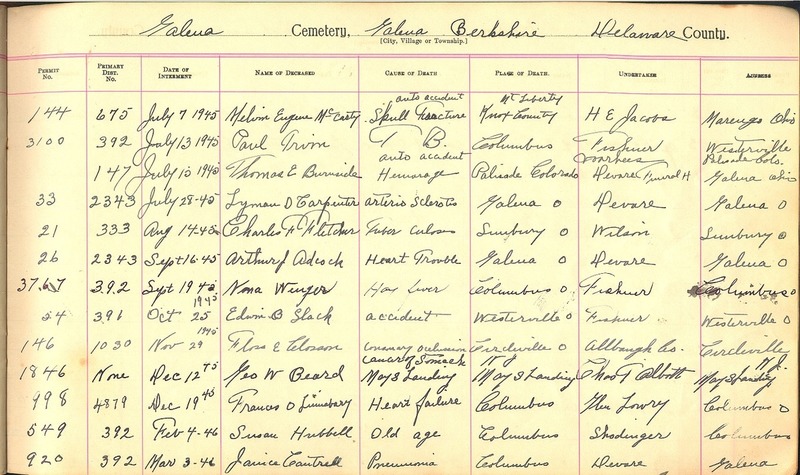 Galena Cemetery, Galena Berkshire Delaware County.
[City, Village or Township.]
PERMIT NO. PRIMARY DIST. NO. DATE OF INTERMENT NAME OF DECEASED CAUSE OF DEATH PLACE OF DEATH. UNDERTAKER ADDRESS
auto accident Mt Liberty
144 675 July 7 1945 Melvin Eugene McCarty Skull Fracture Knox County H E Jacobs Marengo Ohio
3100 392 July 13 1945 Paul T B. Columbus Westerville
auto accident Voorhees Palisade Colo.
147 July 15 1945 Thomas E Hemorage Palisade Colorado Devore Funeral H Galena Ohio
33 2343 July 28-45 Lyman D Carpenter arterio Sclerotis Galena O Devore Galena O
21 333 Aug 14-45 Charles F Fletcher Tuber culoses Sunbury O Wilson Sunbury O
26 2343 Sept 16-45 Arthur J Adcock Heart Trouble Galena O Devore Galena O
3767 392 Sept 19 45 Nona Winger Columbus O Columbus O
54 391 Oct 25 1945 Edwin B Slack accident Westerville O Westerville O
146 1030 Nov 29 1945 Floss E Closson Coronary occlusion Circleville O Circleville
Cancer of Stomach N J N J.
1846 None Dec 12 45 Geo W Beard Mays Landing Mays Landing Mays Landing
998 4879 Dec 19 45 Frances O Heart failure Columbus Glen Lowry Columbus O
549 392 Feb 4-46 Susan Hubbell Old age Columbus Shodinger Columbus
920 392 Mar 3-46 Janice Cantrell Pneumonia Columbus Devore Galena